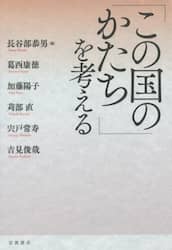 「この国の
かたち」
を考える
長谷部恭男 編
葛西康徳
加藤陽子
苅部 直
宍戸常寿
吉見俊哉
岩波書店